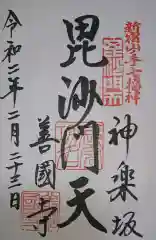 新宿山ノ手七福神
神樂坂
毘沙門天
善國寺
令和二年二月二十三日